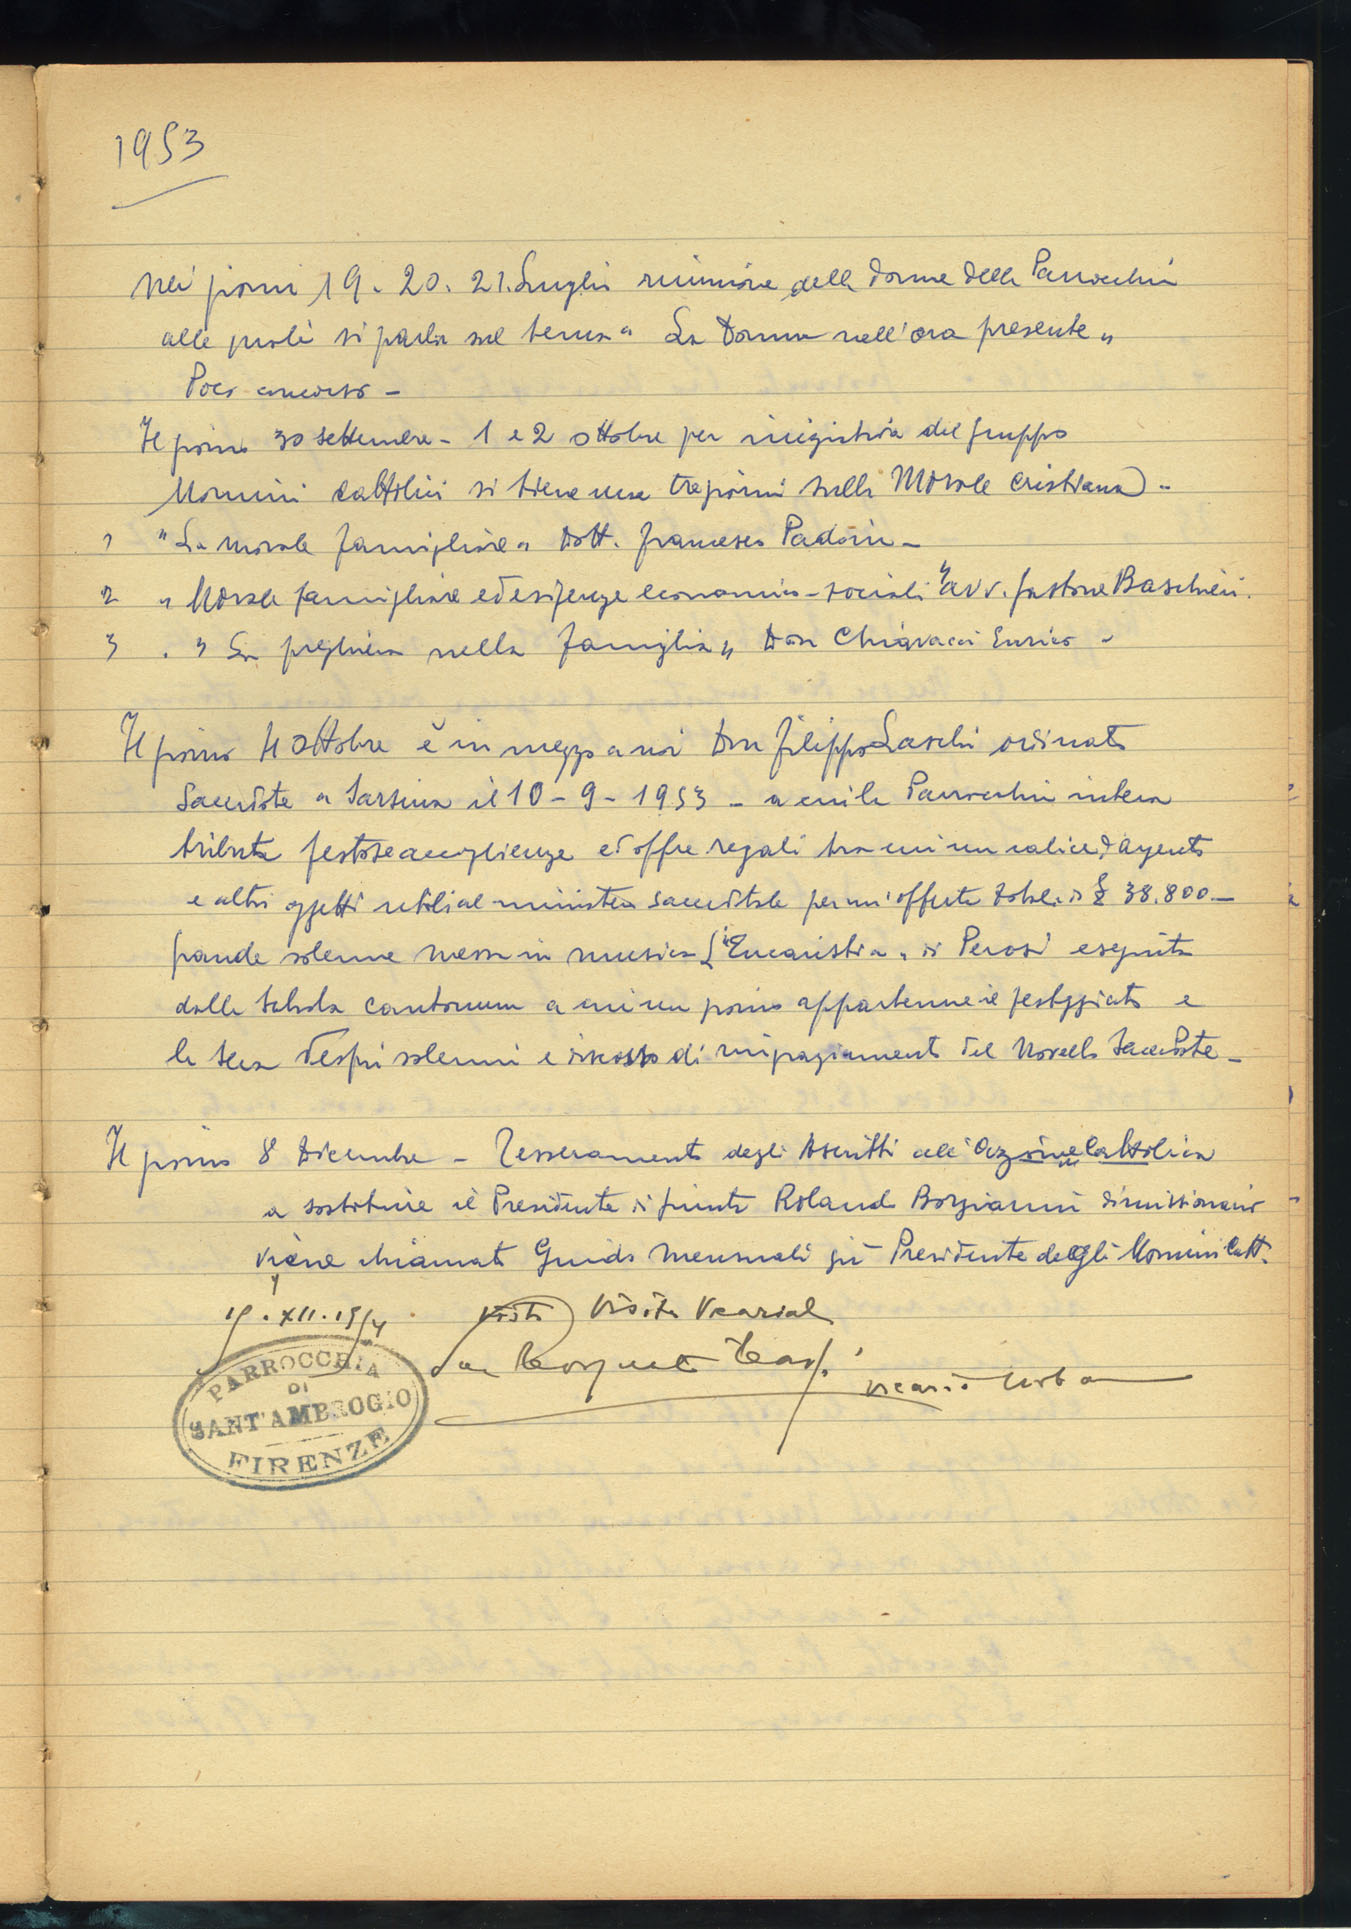 1953
Nei giorni 19. 20. 21. Luglio riunione delle donne della Parrocchia
alle quali si parla sul tema " La Donna nell'ora presente "
Poco concorso -
Il giorno 30 settembre - 1 e 2 ottobre per iniziativa del gruppo
Uomini Cattolici si tiene una tre giorni sulla Morale Cristiana -
1 " La morale famigliare " Dott. Francesco Padoin -
2 " Morale famigliare ed esigenze economico - sociali " avv. Gastone Baschieri.
3 . " La preghiera nella famiglia " Don Chiavacci Enrico -
Il giorno 4 ottobre è in mezzo a noi Don Filippo Laschi ordinato
Sacerdote a Sarsina il 10 - 9 - 1953 - a cui la Parrocchia intera
tributa festose accoglienze ed offre regali tra cui un calice d'argento
e altri oggetti utili al ministero sacerdotale per un'offerta totale di £ 38.800 -
grande solenne messa in musica L'"Eucaristica" di Perosi eseguita
dalla Schola cantorum a cui un giorno appartenne il festeggiato e
la sera Vespri solenni e discorso di ringraziamento del Novello Sacerdote -
Il giorno 8 Dicembre - Tesseramento degli Ascritti all'Azione Cattolica
a sostituire il Presidente di giunta Rolando Borgianni dimissionario
viene chiamato Guido Mensuali già Presidente degli Uomini Catt.
XII. Visita Vicariale
Vicario Urbano
PARROCCHIA
DI
SANT'AMBROGIO
FIRENZE